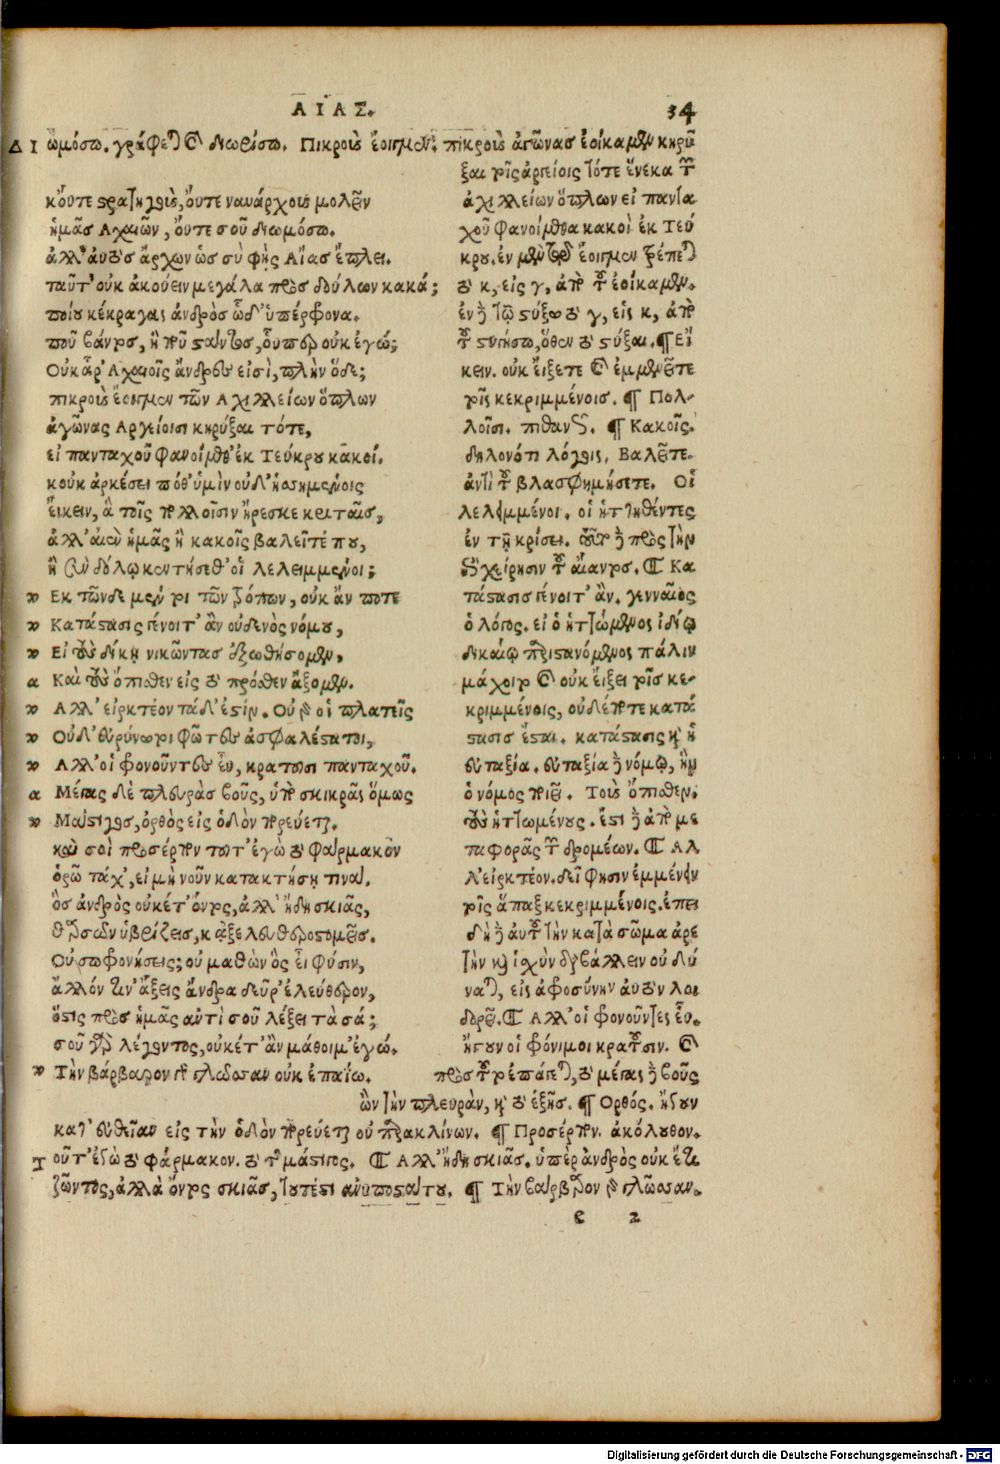 ΑΙΑΣ. 34
ΔΙ ωμόσω. γράφεται καὶ διωρίσω. Πικροὺς ἔοιγμεν. πικροὺς ἀγῶνας ἐοίκαμεν κηρῦ
κοὔτε στρατηγοὺς, οὔτε ναυάρχους μολεῖν
ἡμᾶς Αχαιῶν, οὔτε σοῦ διωμόσω.
ἀλλ' αὐτὸς ἄρχων ὡς σὺ φῂς Αἴας ἔπλει.
ταῦτ' οὐκ ἀκούειν μεγάλα πρὸς δούλων κακά;
ποίου κέκραγας ἀνδρὸς ὧδ' ὑπέρφρονα.
ποῦ βάντος, ἢ ποῦ στάντος, οὗπερ οὐκ ἐγώ;
Οὐκ ἆρ' Αχαιοῖς ἄνδρες εἰσὶ, πλὴν ὅδε;
πικροὺς ἔοιγμεν τῶν Αχιλλείων ὅπλων
ἀγῶνας Αργείοισι κηρύξαι τότε,
εἰ πανταχοῦ φανούμεθ' ἐκ Τεύκρου κακοί.
κοὐκ ἀρκέσει ποθ' ὑμῖν οὐδ' ἡσσημένοις
εἴκειν, ἃ τοῖς πολλοῖσιν ἤρεσκε κριταῖς,
ἀλλ' αἰὲν ἡμᾶς ἢ κακοῖς βαλεῖτέ που,
ἢ σὺν δόλῳ κεντήσεθ' οἱ λελειμμένοι;
Εκ τῶνδε μέντοι τῶν τρόπων, οὐκ ἄν ποτε
Κατάστασις γένοιτ' ἂν οὐδενὸς νόμου,
Εἰ τοὺς δίκῃ νικῶντας ἐξωθήσομεν,
Καὶ τοὺς ὄπισθεν εἰς τὸ πρόσθεν ἄξομεν.
Αλλ' εἰρκτέον τάδ' ἐστίν. Οὐ γὰρ οἱ πλατεῖς
Οὐδ' εὐρύνωτοι φῶτες ἀσφαλέστατοι,
Αλλ' οἱ φρονοῦντες εὖ, κρατοῦσι πανταχοῦ.
Μέγας δὲ πλευρὰς βοῦς, ὑπὸ σμικρᾶς ὅμως
Μάστιγος, ὀρθὸς εἰς ὁδὸν πορεύεται.
καὶ σοὶ προσέρπον τοῦτ' ἐγὼ τὸ φάρμακον
ὁρῶ τάχ', εἰ μὴ νοῦν κατακτήσῃ τινά.
ὃς ἀνδρὸς οὐκέτ' ὄντος, ἀλλ' ἤδη σκιᾶς,
θαρσῶν ὑβρίζεις, κἀξελευθεροστομεῖς.
Οὐ σωφρονήσεις; οὐ μαθὼν ὃς εἶ φύσιν,
ἄλλόν τιν' ἄξεις ἄνδρα δεῦρ' ἐλεύθερον,
ὅστις πρὸς ἡμᾶς αὐτὶ σοῦ λέξει τὰ σά;
σοῦ γὰρ λέγοντος, οὐκέτ' ἂν μάθοιμ' ἐγώ.
Τὴν βάρβαρον γὰρ γλῶσσαν οὐκ ἐπαΐω.
ξαι τοῖς ἀργείοις τότε ἕνεκα τῶν
ἀχιλλείων ὅπλων εἰ παντα
χοῦ φανούμεθα κακοὶ ἐκ Τεύ
κρου. ἐν μέντοι τῷ ἔοιγμεν τρέπεται
τὸ κ, εἰς γ, ἀπὸ τοῦ ἐοίκαμεν.
ἐν δὲ τῷ στύξω τὸ γ, εἰς κ, ἀπὸ
τοῦ στυγήσω, ὅθεν τὸ στύξαι. ¶ Εἴ
κειν. οὐκ εἴξετε καὶ ἐμμενεῖτε
τοῖς κεκριμμένοις. ¶ Πολ-
λοῖσι. πιθανῶς. ¶ Κακοῖς.
δηλονότι λόγοις, Βαλεῖτε.
ἀντὶ τοῦ βλασφημήσετε. Οἱ
λελειμμένοι. οἱ ἡττηθέντες
ἐν τῇ κρίσει. τοῦτο δὲ πρὸς τὴν
ἐγχείρησιν τοῦ αἴαντος. ¶ Κα
τάστασις γένοιτ' ἄν. γενναῖος
ὁ λόγος. εἰ ὁ ἡττώμενος ἰδίῳ
δικαίῳ παριστανόμενος πάλιν
μάχοιτο καὶ οὐκ εἴξει τοῖς κε-
κριμμένοις, οὐδέποτε κατά
στασις ἔσται. κατάστασις καὶ ἡ
εὐταξία. εὐταξία δὲ νόμῳ, ἣν
ὁ νόμος ποιεῖ. Τοὺς ὄπισθεν.
τοὺς ἡττωμένους. ἔστι δὲ ἀπὸ με
ταφορᾶς τῶν δρομέων. ¶ Αλ
λ' εἰρκτέον. δεῖ φησιν ἐμμένειν
τοῖς ἅπαξ κεκριμμένοις. ἐπει
δὴ δὲ αὐτοῦ τὴν κατὰ σῶμα ἀρε
τὴν καὶ ἰσχὺν διαβάλλειν οὐ δύ
ναται, εἰς ἀφροσύνην αὐτὸν λοι
δορεῖ. ¶ Αλλ' οἱ φρονοῦντες εὖ.
ἤγουν οἱ φρόνιμοι κρατοῦσιν. καὶ
πρὸς τοῦτο ἐπάγει, τὸ μέγας δὲ βοῦς
ὢν τὴν πλευρὰν, καὶ τὸ ἑξῆς. ¶ Ορθός. ἤγουν
κατ' εὐθεῖαν εἰς τὴν ὁδὸν πορεύεται οὐ παρακλίνων. ¶ Προσέρπον. ἀκόλουθον.
Τοῦτ' ἐγὼ τὸ φάρμακον. τὸ τῆς μάστιγος. ¶ Αλλ' ἤδη σκιᾶς. ὑπὲρ ἀνδρὸς οὐκ ἔτι
ζῶντος, ἀλλὰ ὄντος σκιᾶς, τουτέστι ἀνυποστάτου. ¶ Τὴν βάρβαρον γὰρ γλῶσσαν.
e 2
Digitalisierung gefördert durch die Deutsche Forschungsgemeinschaft - DFG